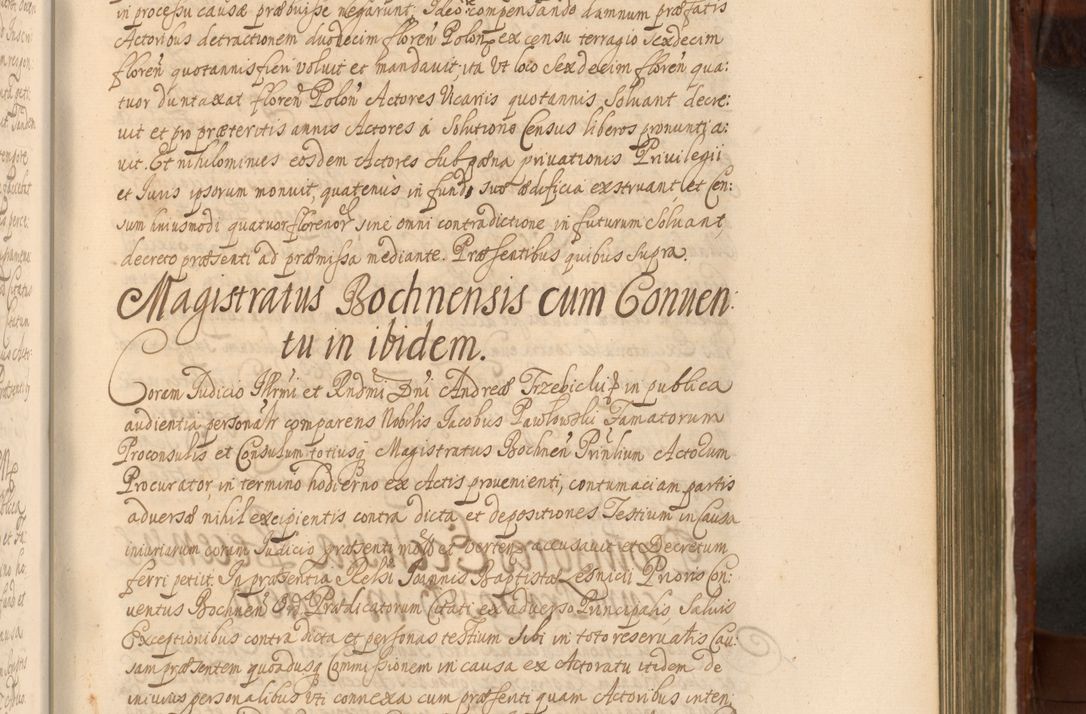 in processu causæ præbuisse negarunt. Ideo compensando damnum præfatis
Actoribus detractionem duodecim floren Polon ex censu terragio sexdecim
floren quotannis fieri voluit et mandavit, ita vt loco sexdecim floren qua:
tuor duntaxat floren Polon Actores Vicariis quotannis soluant decre:
uit et pro præteritis annis Actores à solutione Census liberos pronuntia:
uit. Et nihilominus eosdem Actores sub pæna priuationis Priuilegii
et Iuris ipsorum monuit, quatenus in fundo suo ædificia exstruant et Cen:
sum huiusmodi quatuor florenor sine omni contradictione in futurum soluant,
decreto præsenti ad præmissa mediante. Præsentibus quibus supra.
Magistratus Bochnensis cum Conuen:
tu in ibidem.
Coram Iudicio Illrmi et Rndmi Dni Andreæ Trzebicki in publica
audientia personalr comparens Nobilis Jacobus Pawłowski Famatorum
Proconsulis et Consulum totiusq Magistratus Bochnen Prinlium Actorum
Procurator, in termino hodierno ex Actis provenienti, contumaciam partis
aduersæ nihil excipientis contra dicta et depositiones Testium in Causa
iniuriarum coram Iudicio præsenti et verten accusauit et Decretum
ferri petiit. In præsentia Relsi Joannis Baptistæ Lesnicii Prioris Con:
ventus Bochnen Ord Prædicatorum Citati ex aduerso Principalis, Saluis
Exceptionibus contra dicta et personas testium sibi in toto reseruatis Cau:
sam præsentem quoadusq Commissionem in causa ex Actoratu itidem de
iniuriis personalibus vti connexa cum præsenti quam Actoribus inten: